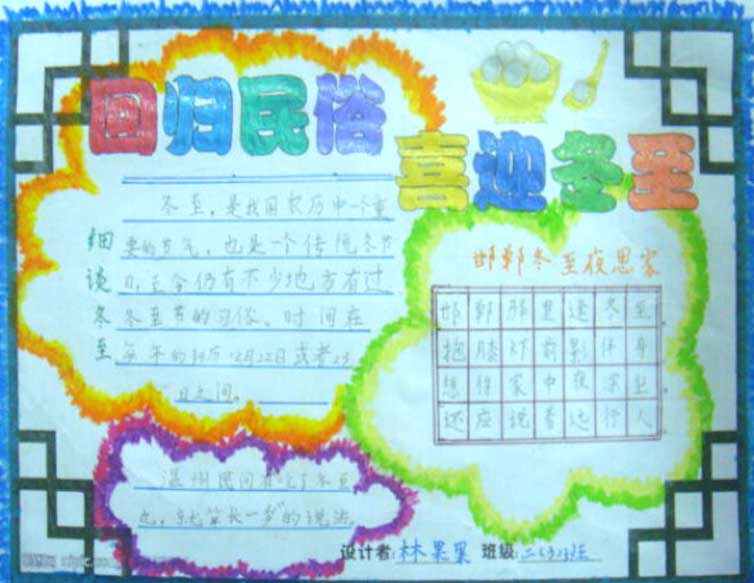 回归民俗
喜迎冬至
细谈冬至
冬至，是我国农历中一个重
要的节气，也是一个传统节
日，至今仍有不少地方有过
冬至节的习俗。时间在
每年的阳历12月22日或者23
日之间。
邯郸冬至夜思家
邯郸驿里逢冬至
抱膝灯前影伴身
想得家中夜深坐
还应说着远行人
温州民间有"吃了冬至
丸，就算长一岁"的说法
设计者:林果果 班级:二(3)班